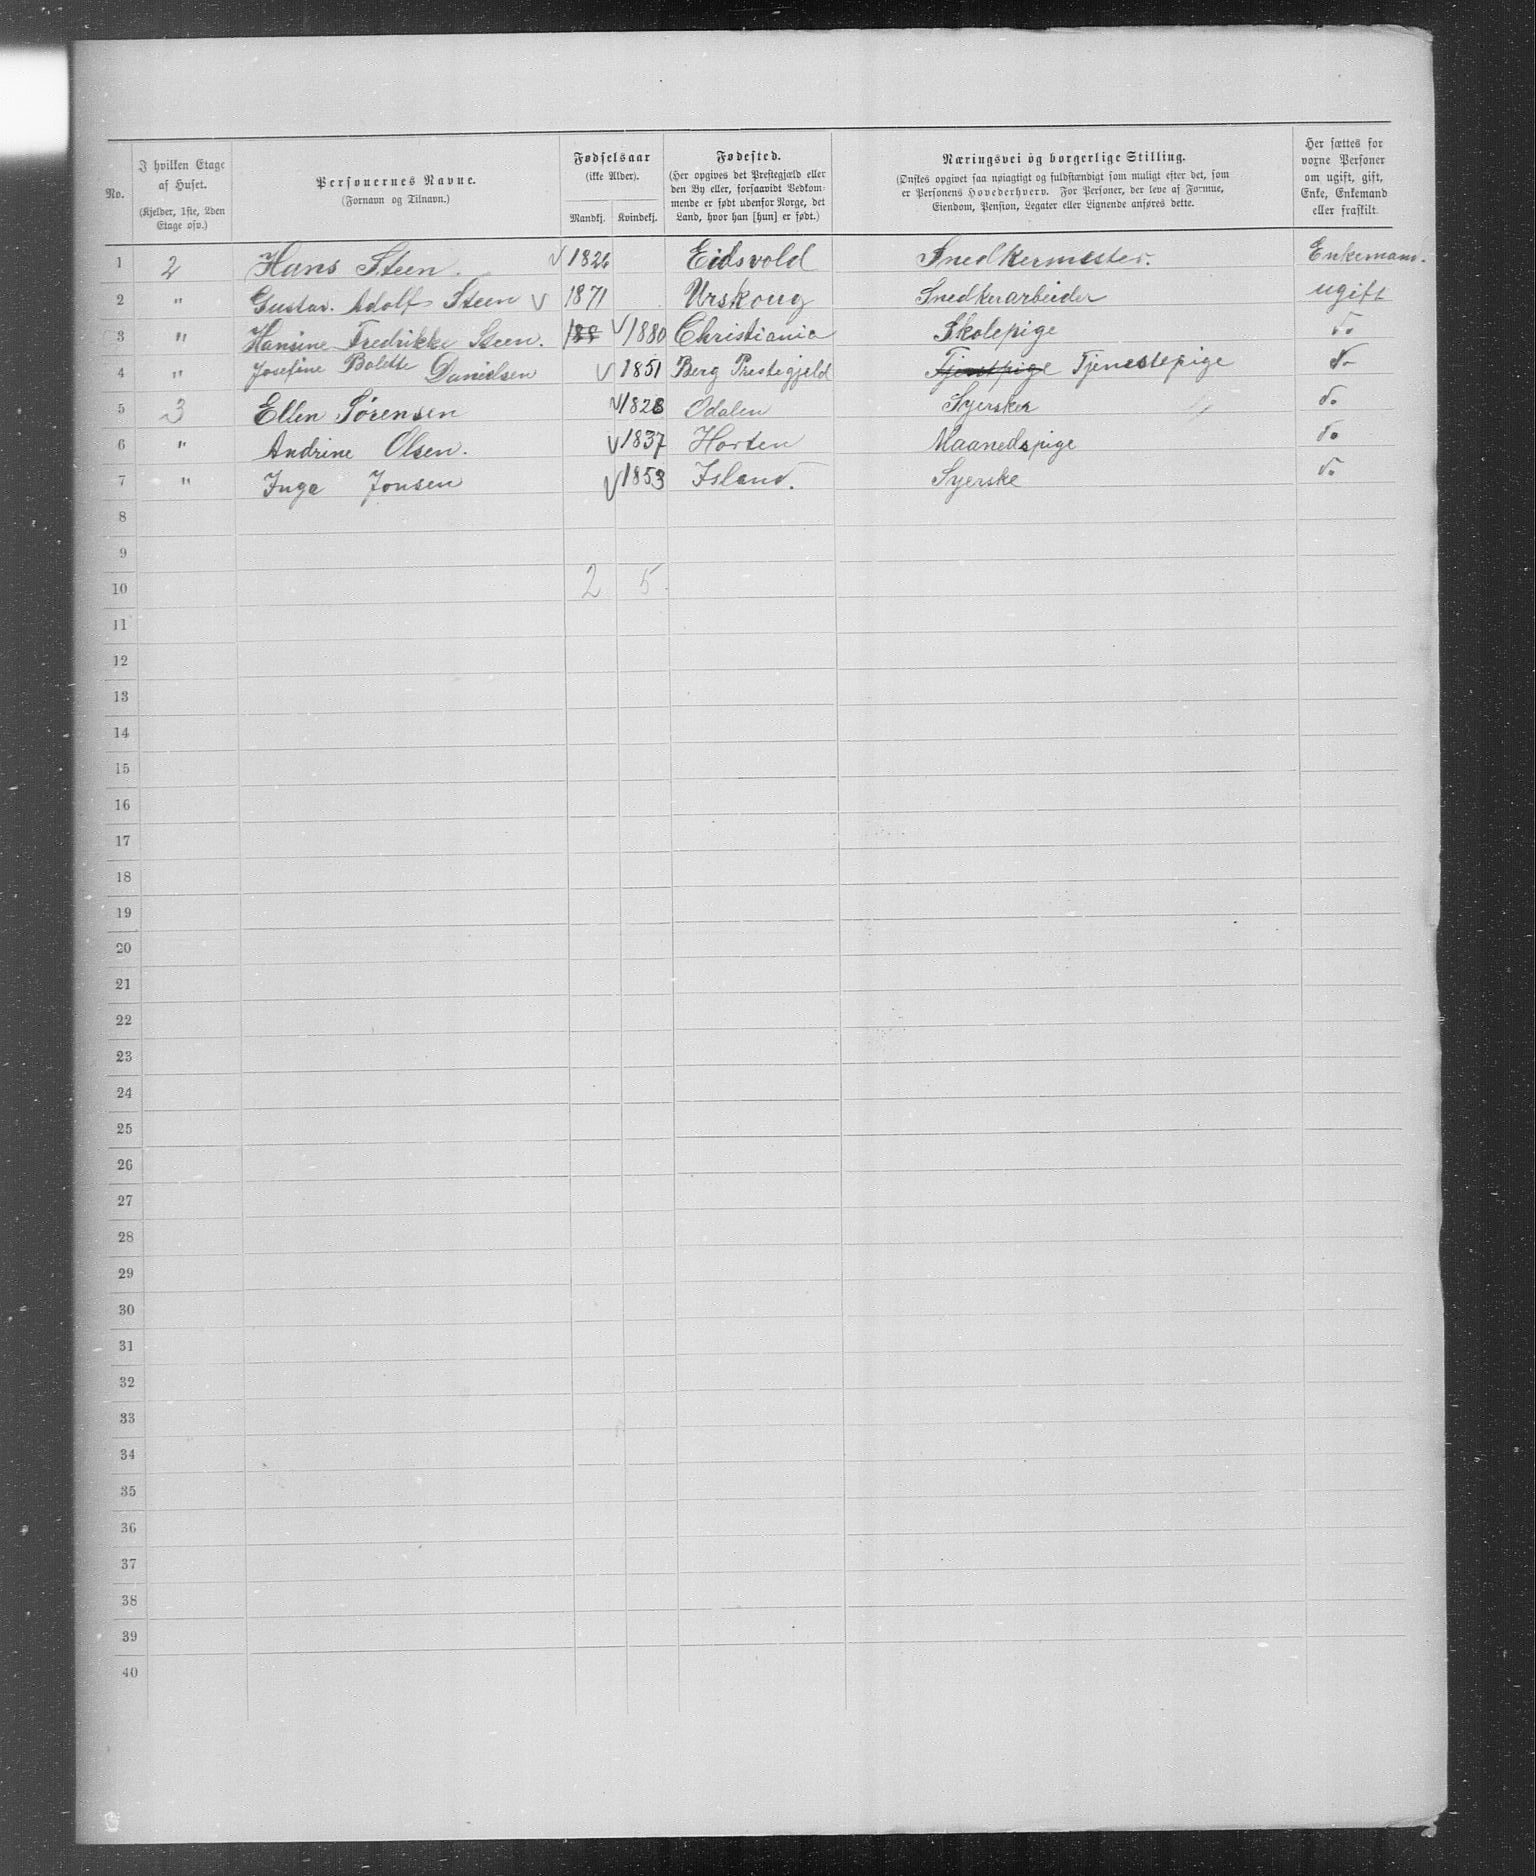 No.
I hvilken Etage
af Huset.
(Kjelder, 1ste, 2den
Etage osv.)
Personernes Navne.
(Fornavn og Tilnavn.)
Fødselsaar
(ikke Alder).
Mandkj. Kvindekj.
Fødested.
(Her opgives det Prestegjæld eller
den By eller, forsaavidt Vedkom-
mende er født udenfor Norge, det
Land, hvor han [hun] er født.)
Næringsvei og borgerlige Stilling.
(Ønskes opgivet saa nøiagtigt og fuldstændigt som muligt efter det, som
er Personens Hovederhverv. For Personer, der leve af Formue,
Eiendom, Pension, Legater eller Lignende anføres dette.
Her sættes for
voxne Personer
om ugift, gift,
Enke, Enkemand
eller fraskilt.
1 2 Hans Steen. √ 1826 Eidsvold Snedkermester. Enkemann.
2 " Gustav. Adolf Steen √ 1871 Urskoug Snedkerarbeider ugift
3 " Hansine Fredrikke Steen. 188 √ 1880 Christiania Skolepige do
4 " Josefine Bolette Danielsen √ 1851 Berg Prestegjeld Tjenstpige Tjenestepige do
5 3 Ellen Sørensen √ 1828 Odalen Syersker do
6 " Andrine Olsen. √ 1837 Horten Maanedspige do
7 " Inga Jonsen √ 1853 Island. Syerske do
8
9
10 2 5
11
12
13
14
15
16
17
18
19
20
21
22
23
24
25
26
27
28
29
30
31
32
33
34
35
36
37
38
39
40